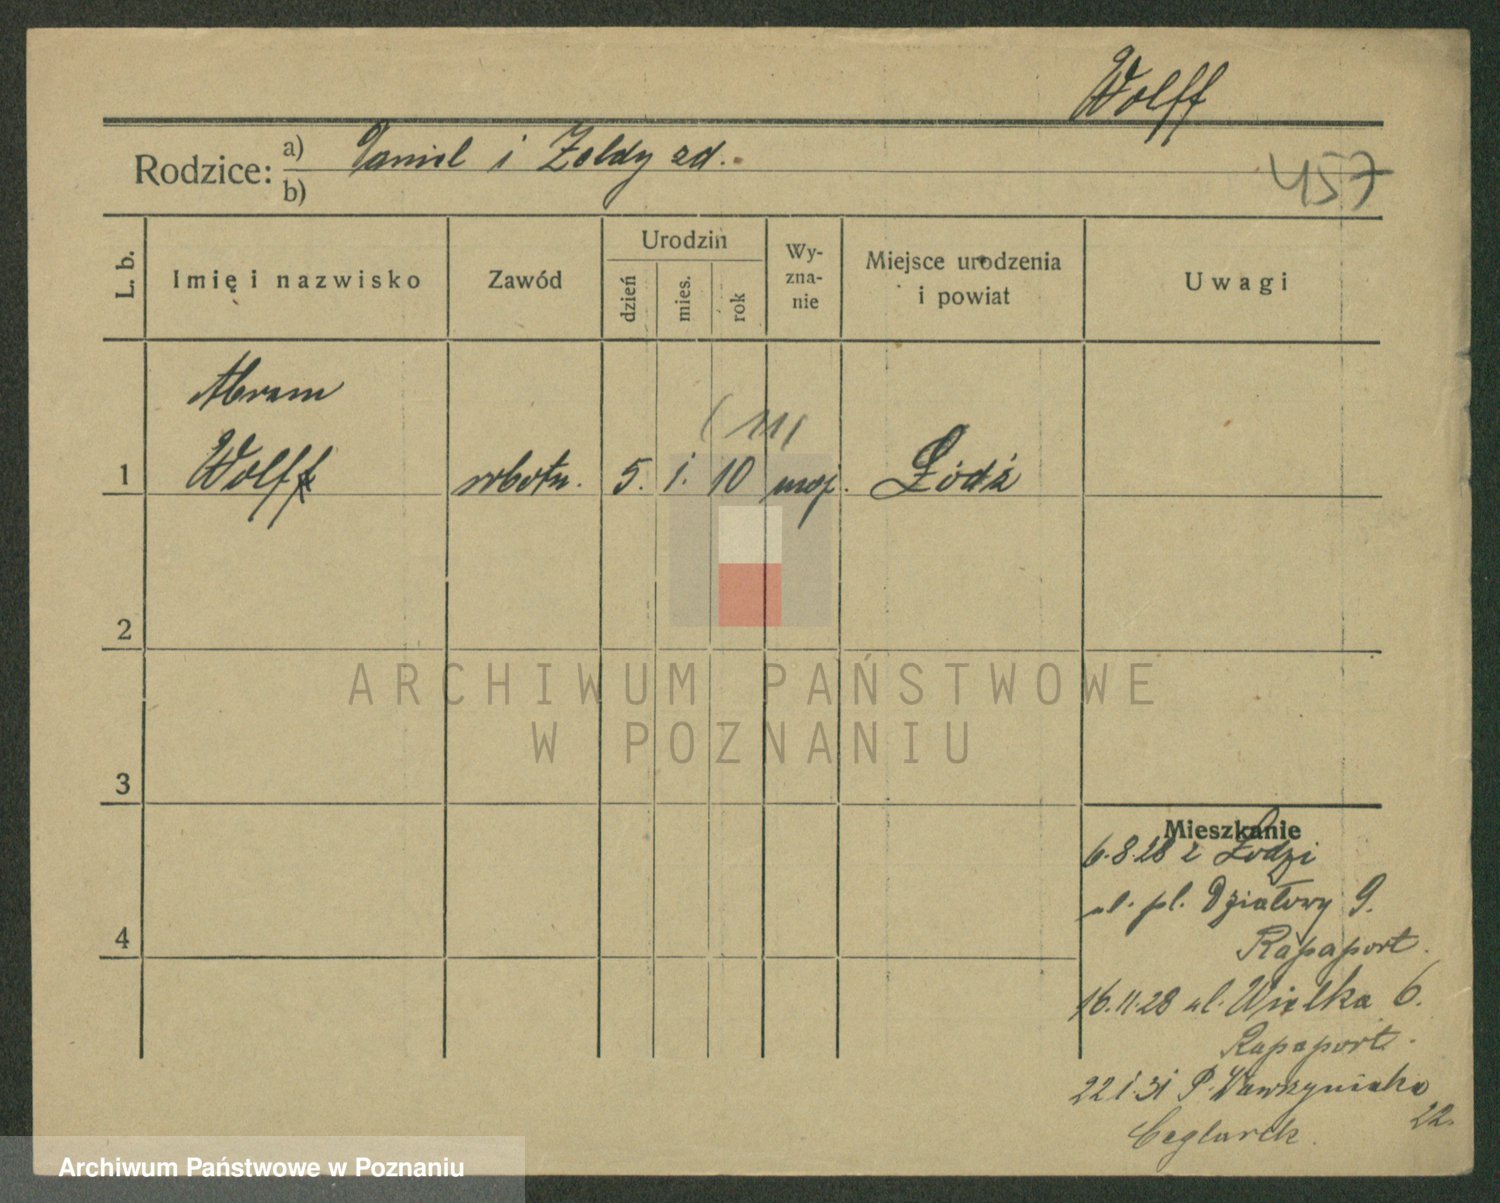 Wolff
Rodzice: a) Daniel i Zeldy zd.
b)
457
L. b. Imię i nazwisko Zawód Urodzin dzień mies. rok Wy-zna-nie Miejsce urodzenia i powiat Uwagi
Abram
( 11 )
1 Wolff robotn. 5. 1. 10 mojż. Łódź
2
ARCHIWUM PAŃSTWOWE
W POZNANIU
3
Mieszkanie
6.8.28 z Łodzi
ul. pl. Działowy 9.
Rapaport.
4
16.11.28 ul. Wielka 6.
Rapaport.
22.1.31 P. Wawrzyniaka
22.
Ceglarek.
Archiwum Państwowe w Poznaniu